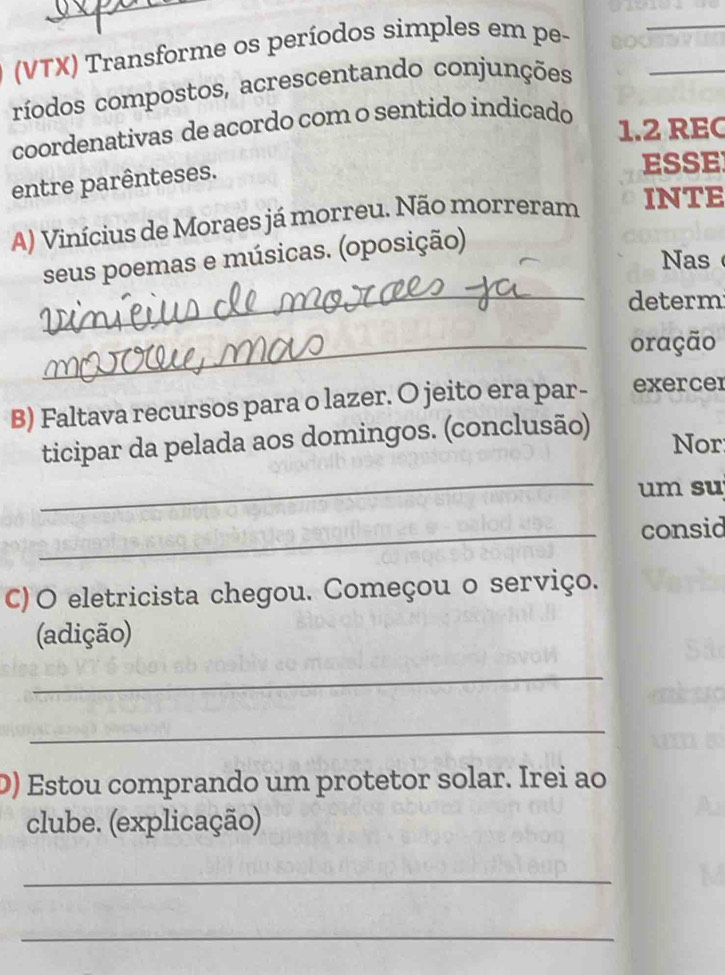 (VTX) Transforme os períodos simples em pe-
ríodos compostos, acrescentando conjunções
coordenativas de acordo com o sentido indicado
entre parênteses.
A) Vinícius de Moraes já morreu. Não morreram
seus poemas e músicas. (oposição)
vinicius de moraes já
morreu, mas
B) Faltava recursos para o lazer. O jeito era par-
ticipar da pelada aos domingos. (conclusão)
C) O eletricista chegou. Começou o serviço.
(adição)
D) Estou comprando um protetor solar. Irei ao
clube. (explicação)
1.2 REC
ESSE
INTE
Nas
determ
oração
exercer
Nor
um su
consid